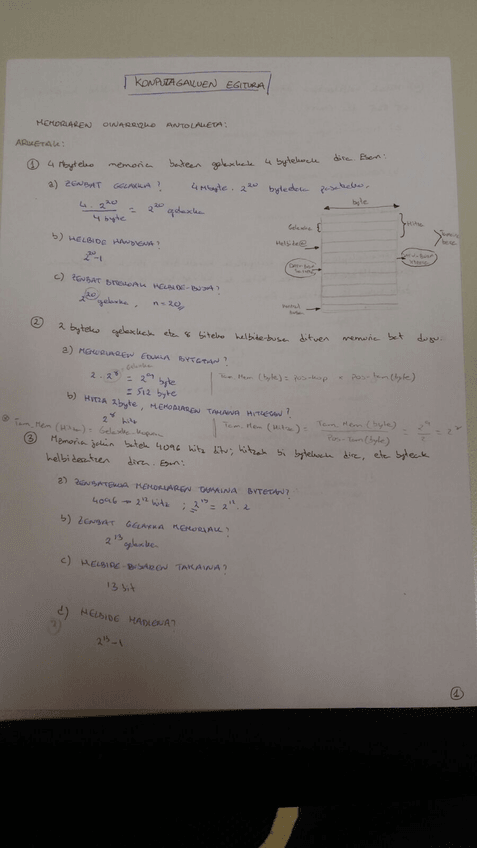 KONPUTAGAILUEN EGITURA
MEMORIAREN OINARRIZKO ANTOLAKETA:
ARIKETAK:
① 4 Mbyteko memoria baten gelaxkak 4 bytekoak dira. Esan:
a) ZENBAT GELAXKA? 4 Mbyte · 2²⁰
4 · 2²⁰ / 4 byte = 2²⁰ gelaxka
byte
Gelaxka
Hitza
b) HELBIDE HANDIENA?
Helbidea
2²⁰-1
c) ZENBAT BITEKOAK HELBIDE-BUSA?
2²⁰ gelaxka, n = 20
② 2 byteko gelaxkak eta 8 biteko helbide-busa dituen memoria bat dugu.
a) MEMORIAREN EDUKIA BYTETAN?
gelaxka
2 · 2⁸ = 2⁹ byte Tam. Mem (byte) = pos-kop · pos-tam (byte)
= 512 byte
b) HITZA 2 byte, MEMORIAREN TAMAINA HITZETAN?
2⁸ hitz
Tam. Mem (Hitza) = Gelaxka-kopuru Tam. Mem (Hitza) = Tam. Mem (byte) / Pos-tam (byte) = 2⁹ / 2 = 2⁸
③ Memoria jakin batek 4096 hitz ditu; hitzak bi bytekoak dira, eta byteak
helbideratzen dira. Esan:
a) ZENBATEKOA MEMORIAREN TAMAINA BYTETAN?
4096 → 2¹² hitz ; 2¹³ = 2¹² · 2
b) ZENBAT GELAXKA MEMORIAK?
2¹³ gelaxka
c) HELBIDE-BUSAREN TAMAINA?
13 bit
d) HELBIDE HADIENA?
2¹³-1
①